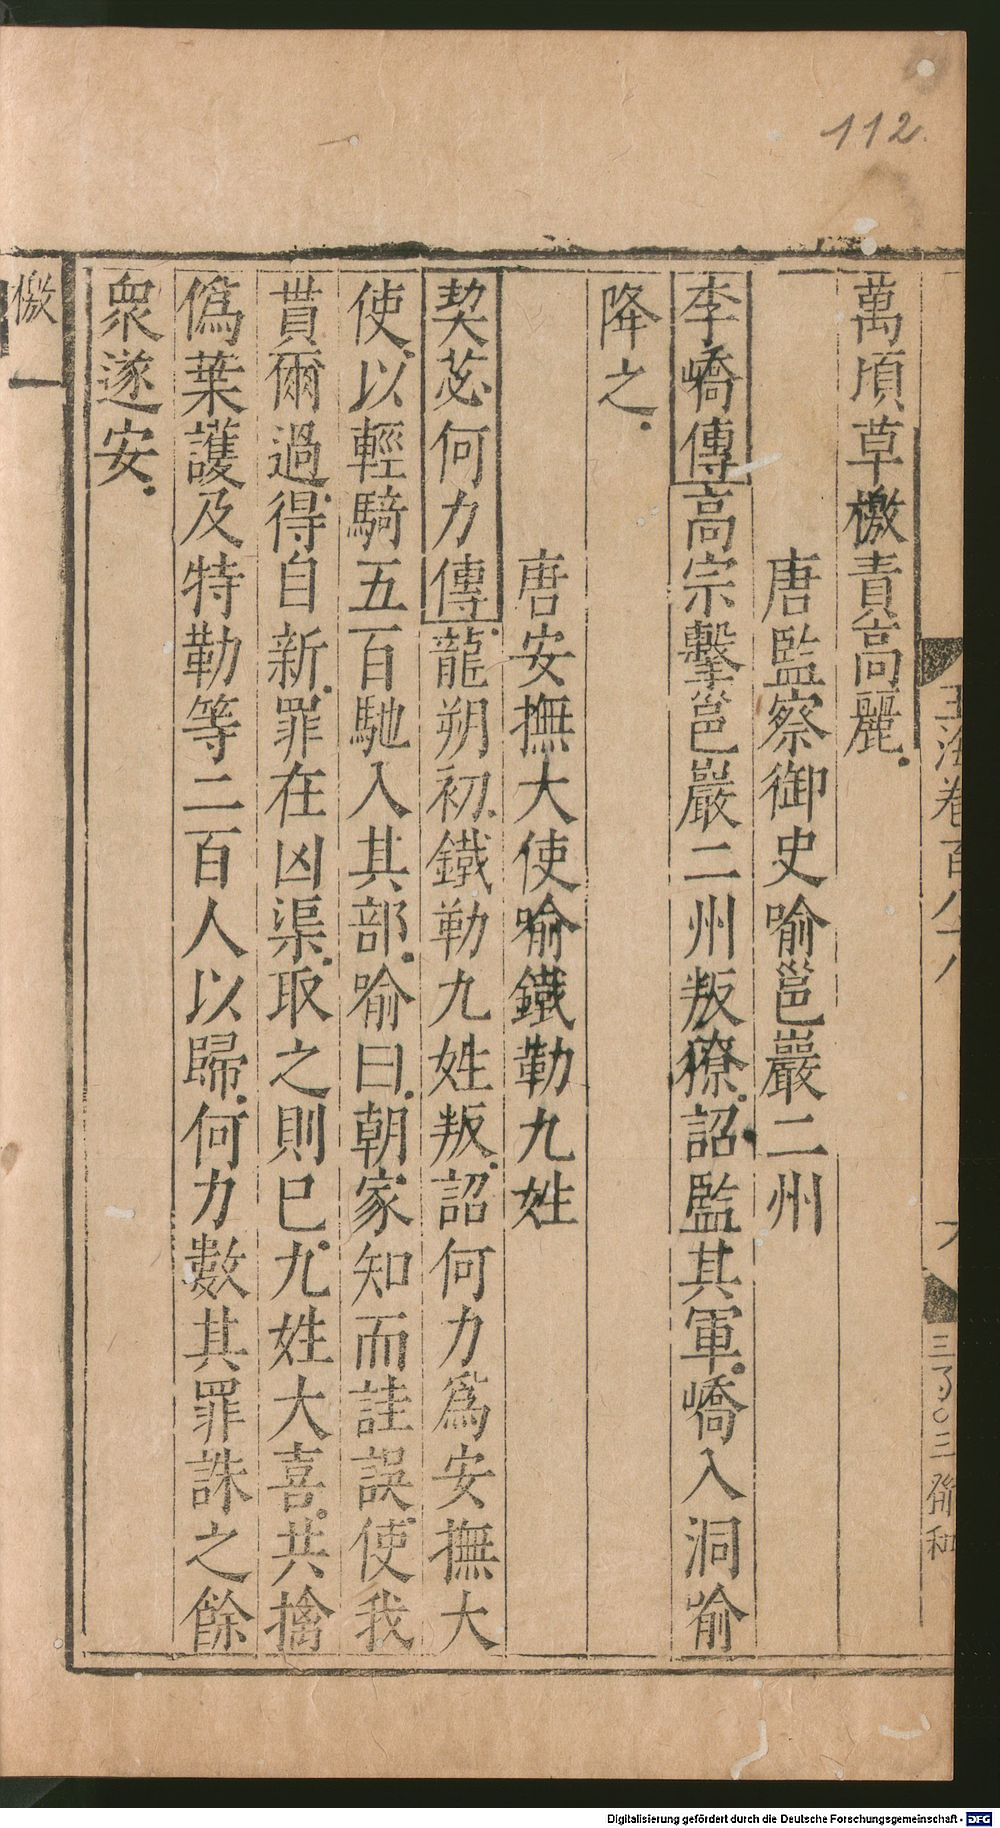 112
玉海卷百八十八
萬頃草檄責高麗
唐監察御史喻邕巖二州
李嶠傳高宗擊邕巖二州叛獠詔監其軍嶠入洞喻
降之
唐安撫大使喻鐵勒九姓
契苾何力傳龍朔初鐵勒九姓叛詔何力爲安撫大
使以輕騎五百馳入其部喻曰朝家知而詿誤使我
貰爾過得自新罪在凶渠取之則已九姓大喜共擒
僞葉護及特勒等二百人以歸何力數其罪誅之餘
衆遂安
檄一
Digitalisierung gefördert durch die Deutsche Forschungsgemeinschaft - DFG